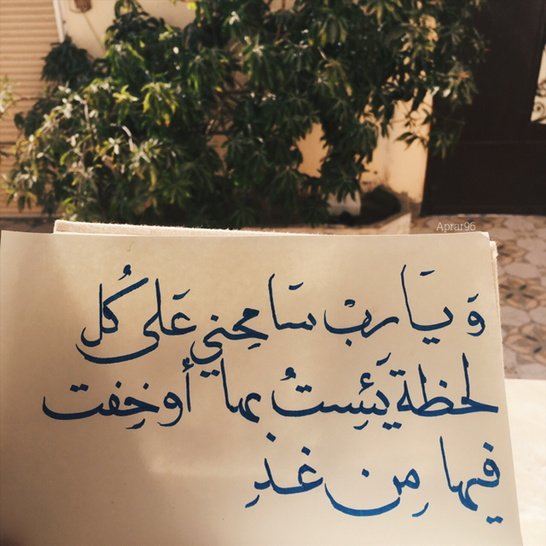 Aprar96
وَيَا ربْ سَامحِني عَلى كُل
لحظة يَئِستُ بها أو خِفت
فيها مِن غدِ